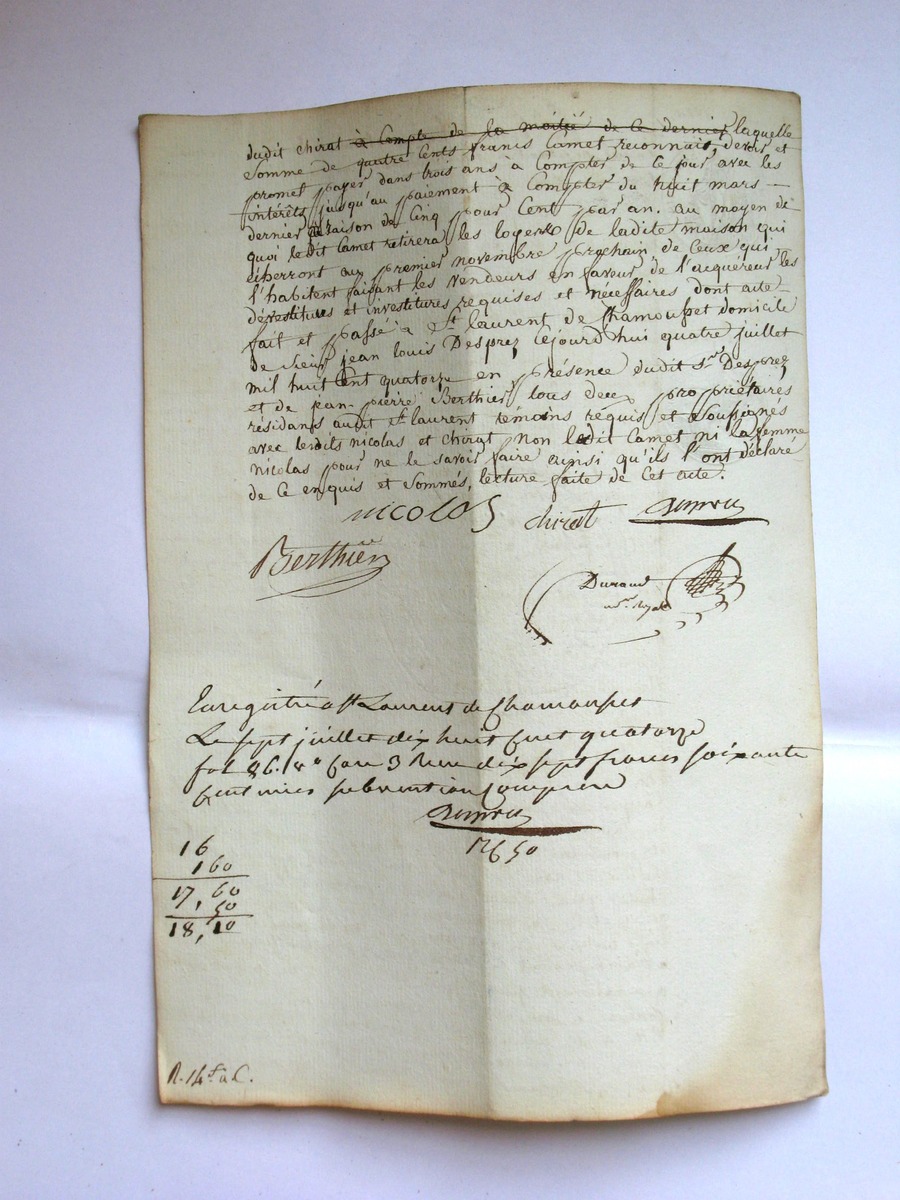 dudit chirat à compte de la moitié de ce dernier laquelle
somme de quatre cents francs Camet reconnait devoir et
promet payer dans trois ans à compter de ce jour avec les
intérêts jusqu'au paiement à compter du huit mars
dernier à raison de cinq pour cent par an. au moyen de
quoi ledit Camet retirera les loyers de ladite maison qui
écherront au premier novembre prochain de ceux qui
l'habitent faisant les vendeurs en faveur de l'acquéreur les
dévestitures et investitures requises et nécessaires dont acte
fait et passé à St laurent de Chamousset domicile
de sieur jean louis Desprez cejourd'hui quatre juillet
mil huit cent quatorze en présence dudit Sr. Desprez
et de jean-pierre Berthier tous deux propriétaires
résidants audit St laurent témoins requis et soussignés
avec lesdits nicolas et chirat non ledit Camet ni la femme
nicolas pour ne le savoir faire ainsi qu'ils l'ont déclaré
de ce enquis et sommés, lecture faite de cet acte.
nicolas chirat
Berthier
Durand
nre. Royal
Enregistré a St Laurent de Chamousset
Le sept juillet dix huit cent quatorze
fol 86. ro Case 3 Reçu dix sept francs soixante
centimes subvention comprise
16
1 60
17, 60
50
18, 10
R. 14f. a C.